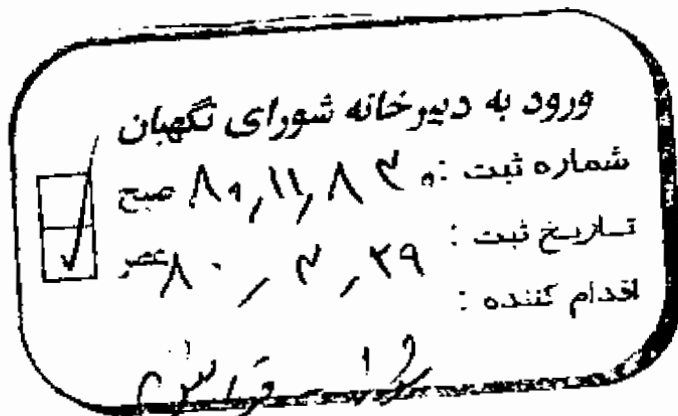 ورود به دبیرخانه شورای نگهبان
شماره ثبت : ۸۰٫۱۱٫۸۳۰ صبح
تاریخ ثبت : ۸۰٫۳٫۲۹ عصر
اقدام کننده :